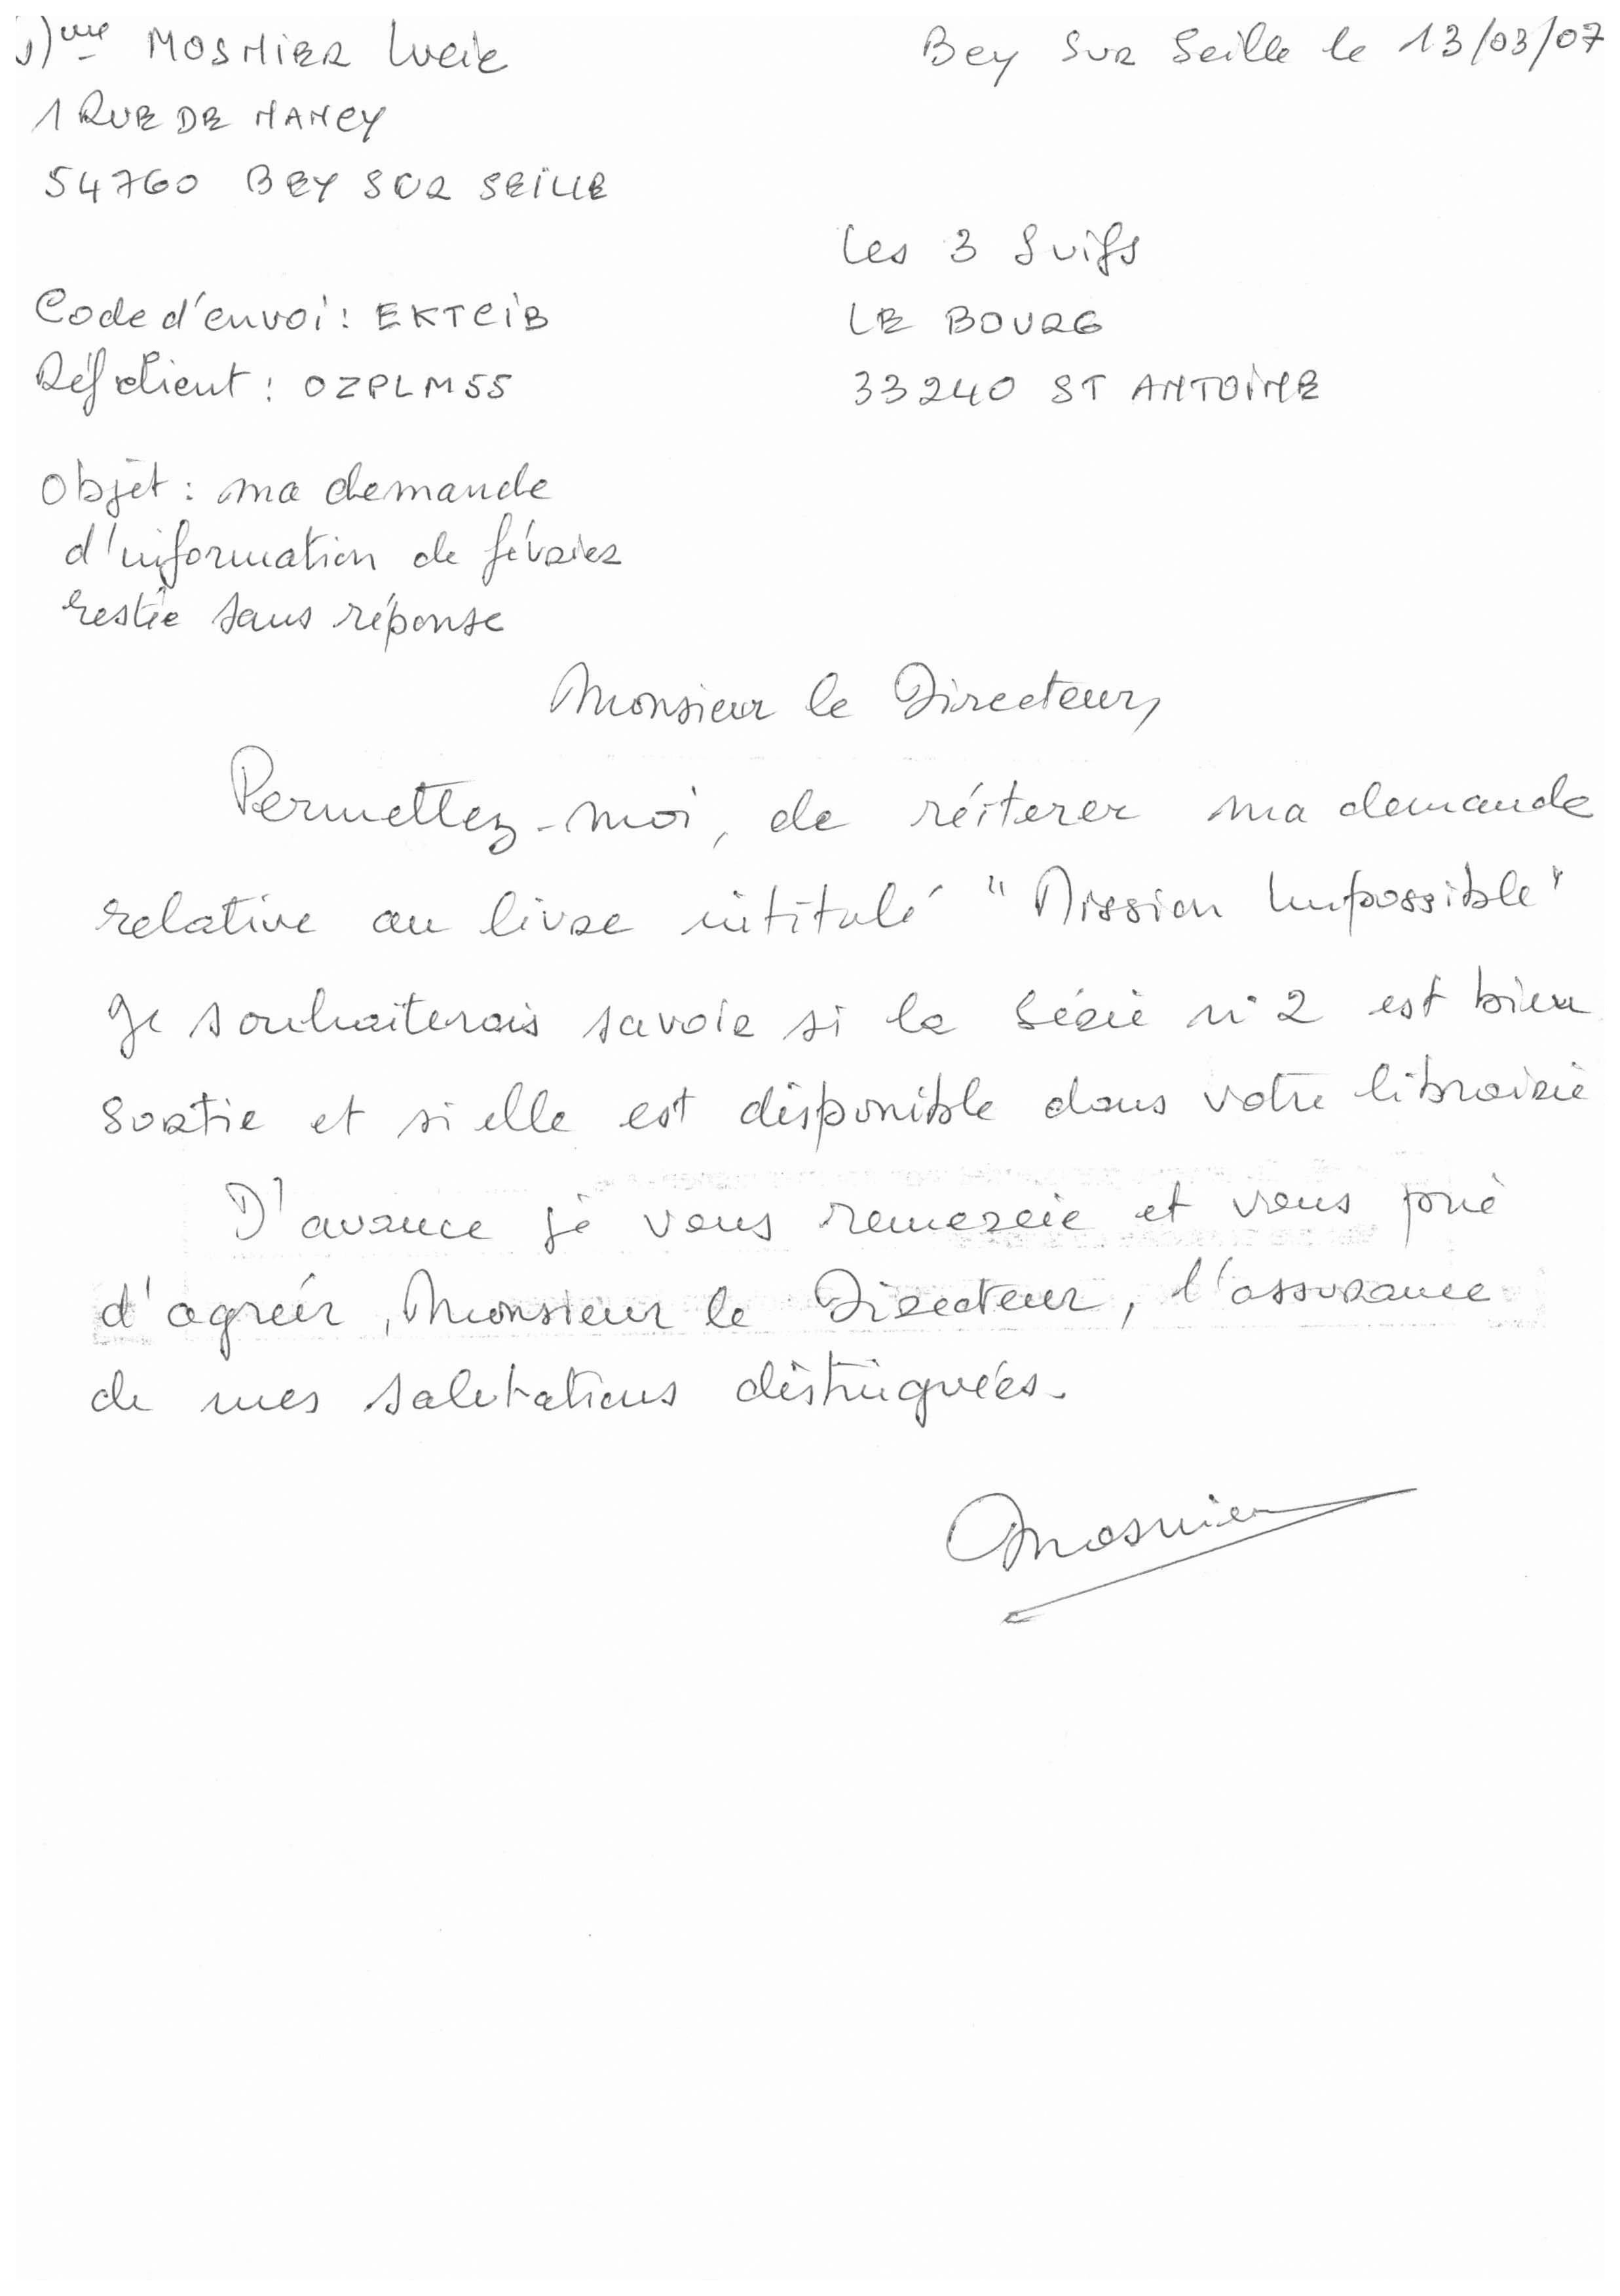 Mme MOSNIER Lucie
Bey Sur Seille le 13/03/07
1 RUE DE NANCY
54760 BEY SUR SEILLE
Les 3 Suifs
Code d'envoi : EKTCIB
LE BOURG
Réf client : OZPLM55
33240 ST ANTOINE
Objet : ma demande
d'information de février
restée sans réponse
Monsieur le Directeur,
Permettez-moi, de réiterer ma demande
relative au livre intitulé "Mission Impossible"
Je souhaiterais savoir si la série n°2 est bien
sortie et si elle est disponible dans votre librairie
D'avance je vous remercie et vous prie
d'agréer, Monsieur le Directeur, l'assurance
de mes salutations distinguées.
Mosnier